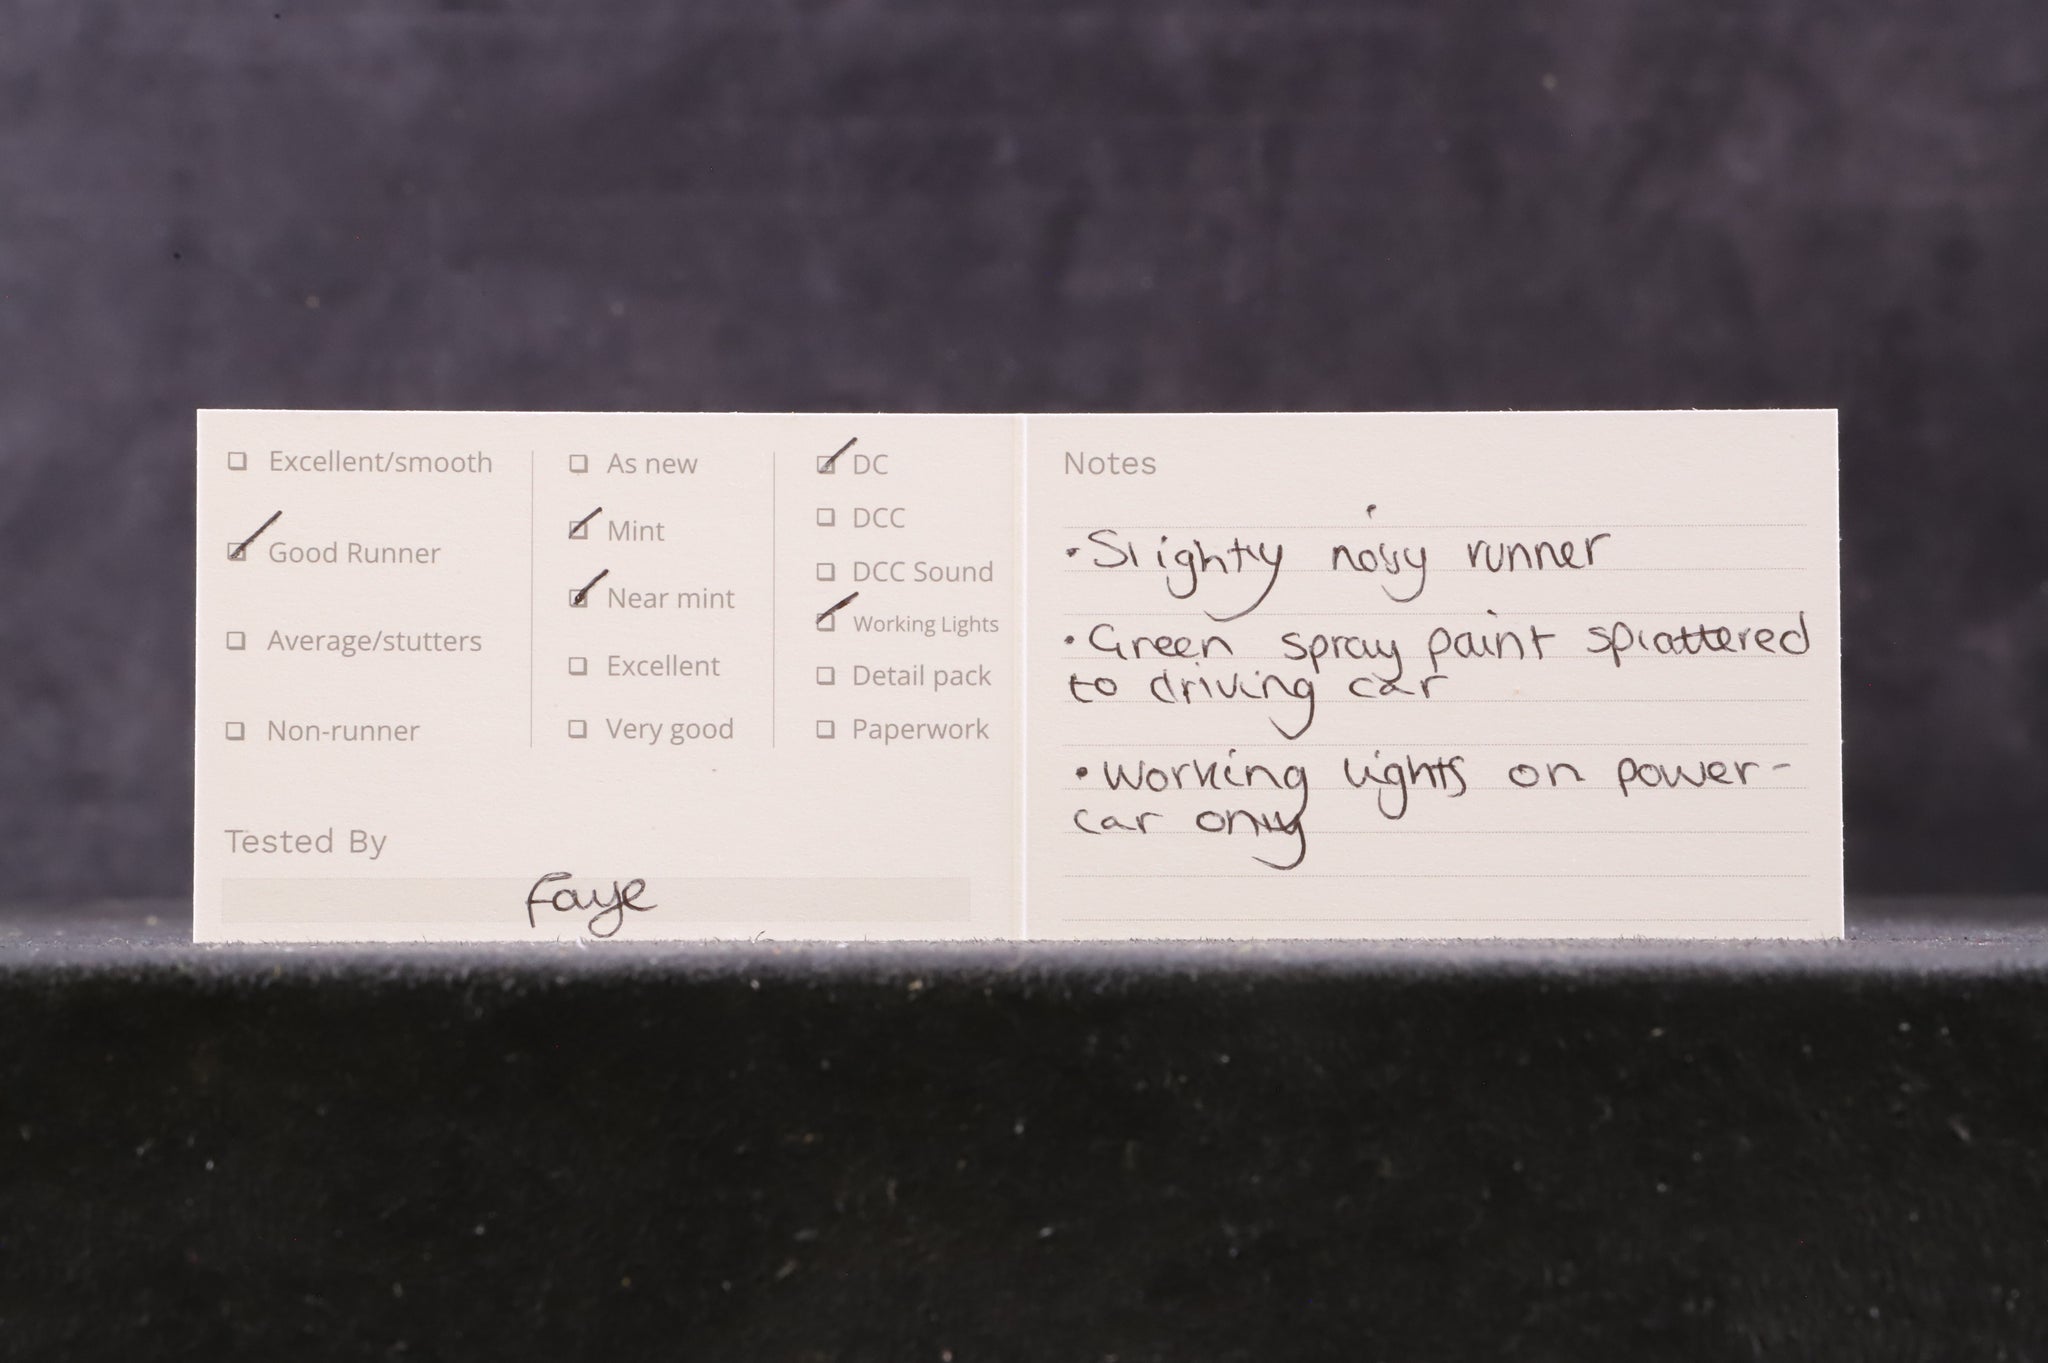 ☐ Excellent/smooth
☑ Good Runner
☐ Average/stutters
☐ Non-runner
☐ As new
☑ Mint
☑ Near mint
☐ Excellent
☐ Very good
☑ DC
☐ DCC
☐ DCC Sound
☑ Working Lights
☐ Detail pack
☐ Paperwork
Tested By
Faye
Notes
• Slightly noisy runner
• Green spray paint splattered
to driving car
• Working lights on power-
car only